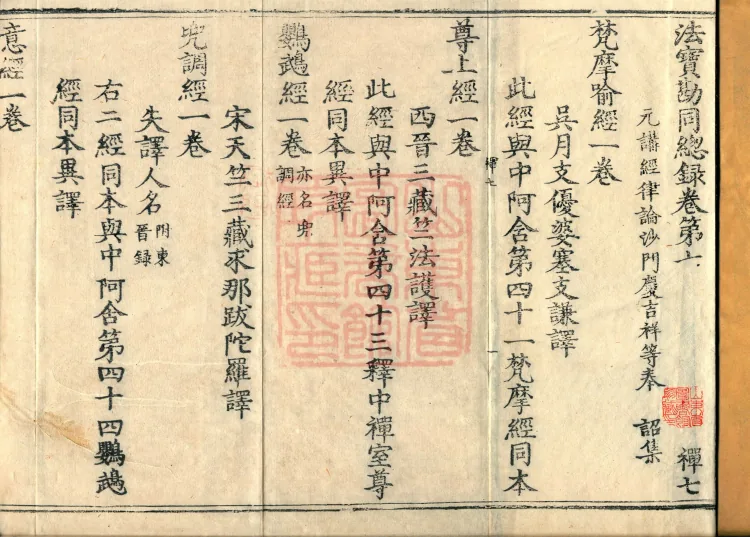 法寶勘同總錄卷第七 禪七
元講經律論沙門慶吉祥等奉 詔集
梵摩喻經一卷
吳月支優婆塞支謙譯
此經與中阿含第四十一梵摩經同本
禪七 一
尊上經一卷
西晉三藏竺法護譯
此經與中阿含第四十三釋中禪室尊
經同本異譯
鸚鵡經一卷 亦名兜
調經
宋天竺三藏求那跋陀羅譯
兜調經一卷
失譯人名 附東
晉錄
右二經同本與中阿含第四十四鸚鵡
經同本異譯
意經一卷